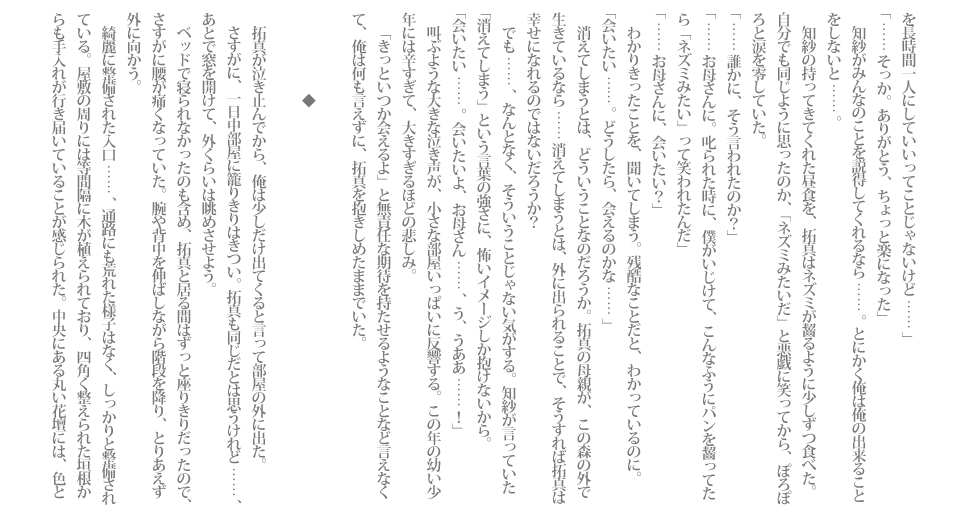 を長時間一人にしていいってことじゃないけど……」
「……そっか。ありがとう、ちょっと楽になった」
　知紗がみんなのことを説得してくれるなら……。とにかく俺は俺の出来ること
をしないと……。
　知紗の持ってきてくれた昼食を、拓真はネズミが齧るように少しずつ食べた。
自分でも同じように思ったのか、「ネズミみたいだ」と悪戯に笑ってから、ぽろぽ
ろと涙を零していた。
「……誰かに、そう言われたのか？」
「……お母さんに。叱られた時に、僕がいじけて、こんなふうにパンを齧ってた
ら「ネズミみたい」って笑われたんだ」
「……お母さんに、会いたい？」
　わかりきったことを、聞いてしまう。残酷なことだと、わかっているのに。
「会いたい……。どうしたら、会えるのかな……」
　消えてしまうとは、どういうことなのだろうか。拓真の母親が、この森の外で
生きているなら……消えてしまうとは、外に出られることで、そうすれば拓真は
幸せになれるのではないだろうか？
　でも……、なんとなく、そういうことじゃない気がする。知紗が言っていた
「消えてしまう」という言葉の強さに、怖いイメージしか抱けないから。
「会いたい……。会いたいよ、お母さん……、う、うああ……！」
　叫ぶような大きな泣き声が、小さな部屋いっぱいに反響する。この年の幼い少
年には辛すぎて、大きすぎるほどの悲しみ。
　「きっといつか会えるよ」と無責任な期待を持たせるようなことなど言えなく
て、俺は何も言えずに、拓真を抱きしめたままでいた。
◆
　拓真が泣き止んでから、俺は少しだけ出てくると言って部屋の外に出た。
　さすがに、一日中部屋に籠りきりはきつい。拓真も同じだとは思うけれど……、
あとで窓を開けて、外くらいは眺めさせよう。
　ベッドで寝られなかったのも含め、拓真と居る間はずっと座りきりだったので、
さすがに腰が痛くなっていた。腕や背中を伸ばしながら階段を降り、とりあえず
外に向かう。
　綺麗に整備された入口……、通路にも荒れた様子はなく、しっかりと整備され
ている。屋敷の周りには等間隔に木が植えられており、四角く整えられた垣根か
らも手入れが行き届いていることが感じられた。中央にある丸い花壇には、色と